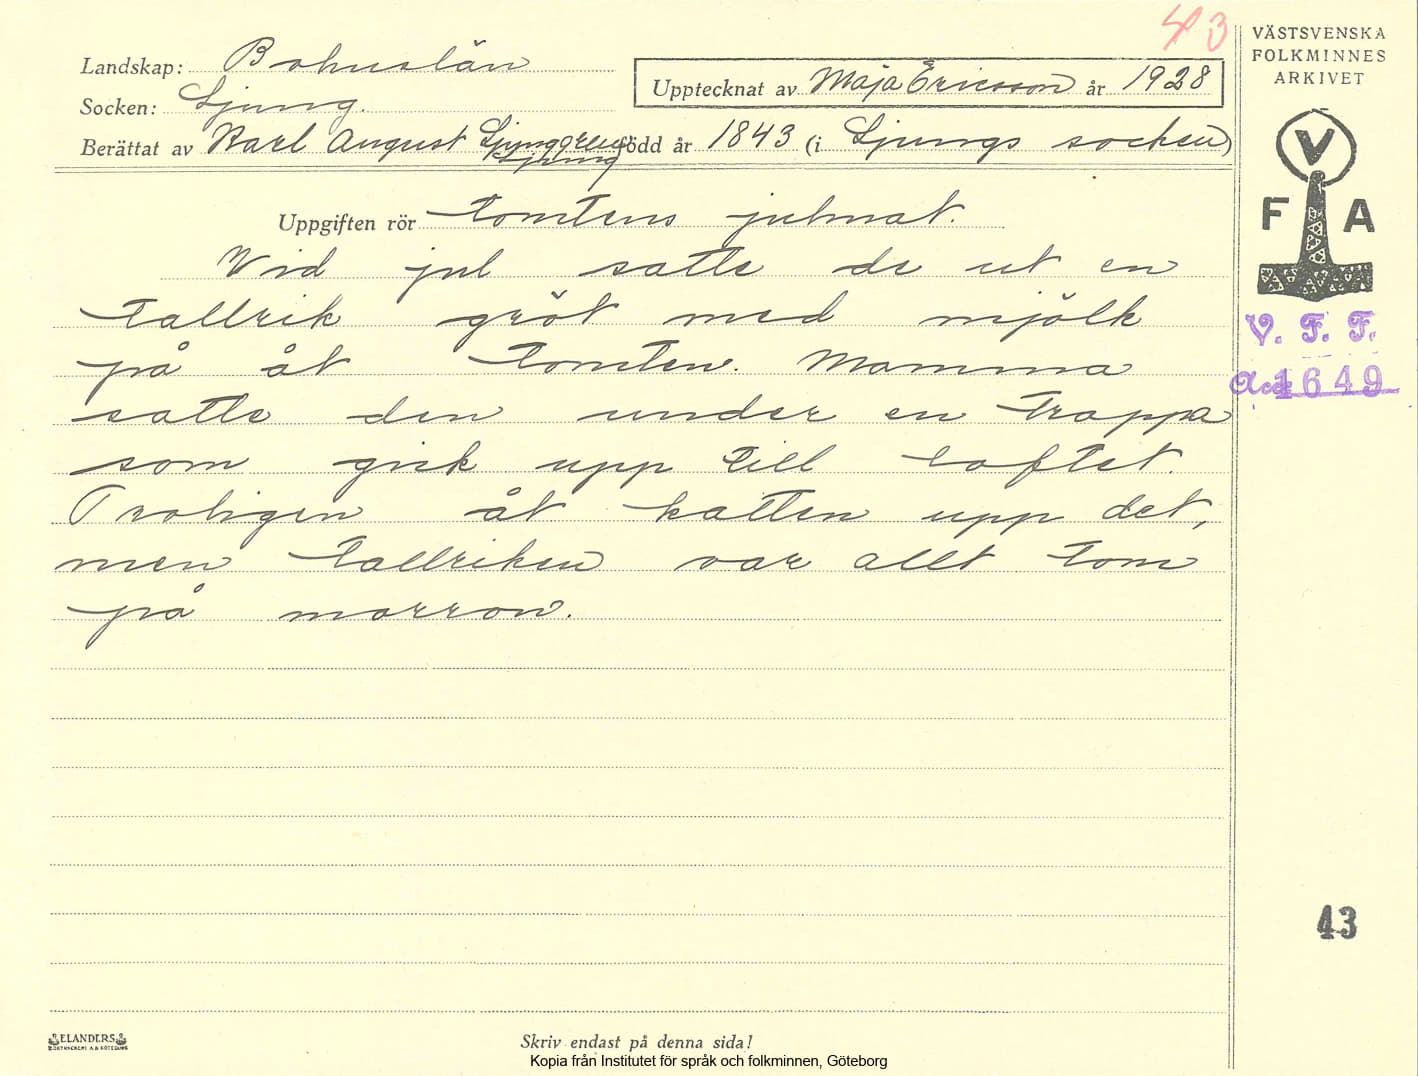 43
VÄSTSVENSKA
FOLKMINNES
ARKIVET
Landskap: Bohuslän
Upptecknat av Maja Ericsson år 1928
Socken: Ljung.
Berättat av Karl August Ljunggren född år 1843 (i Ljungs socken)
Ljung
V
F A
Uppgiften rör Tomtens julmat.
Vid jul satte de ut en
tallrik gröt med mjölk
på åt tomten. Mamma
satte den under en trappa
som gick upp till loftet.
Troligen åt katten upp det,
men tallriken var allt tom
på morron.
V. F. F.
Acc 1649
43
ELANDERS
Skriv endast på denna sida!
Kopia från Institutet för språk och folkminnen, Göteborg